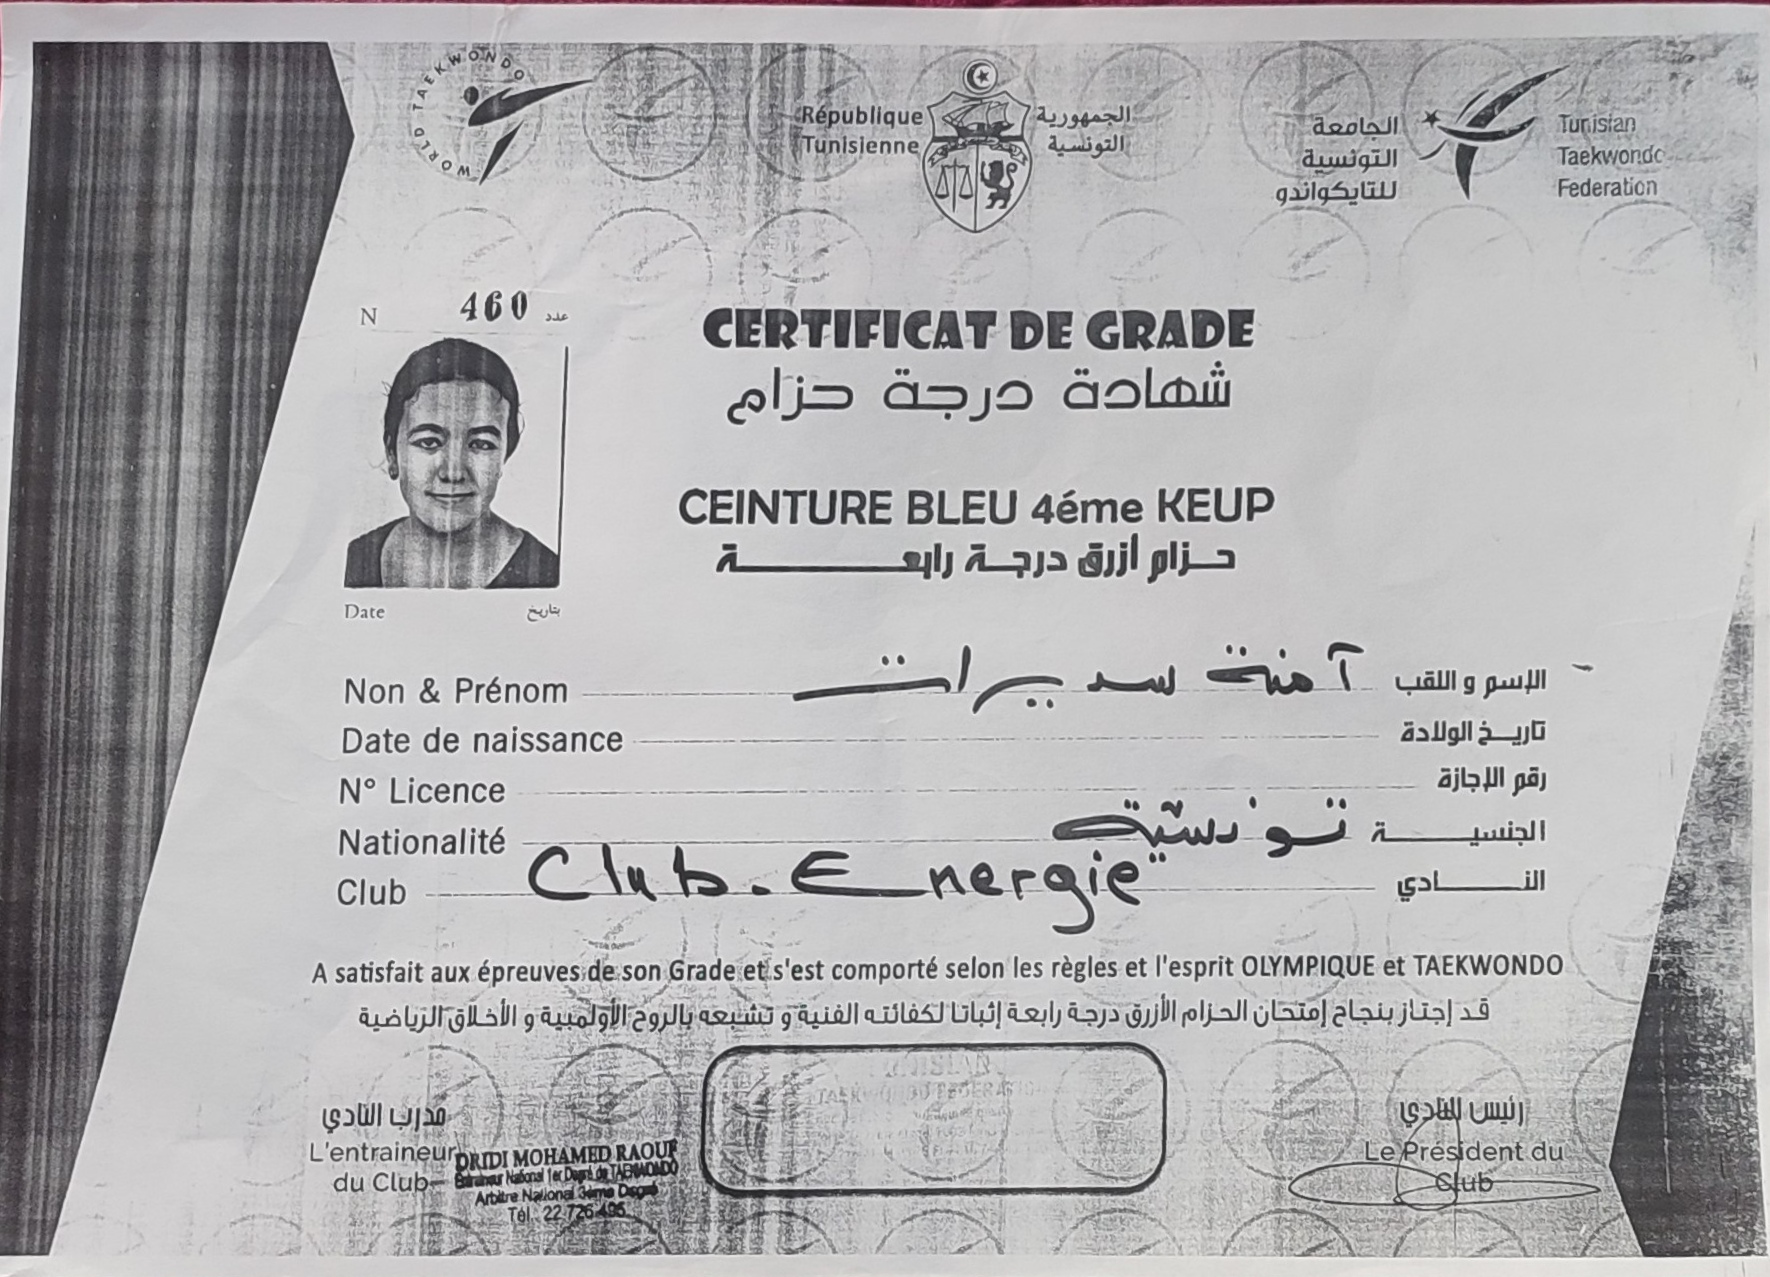 WORLD TAEKWONDO
République
Tunisienne
الجمهورية
التونسية
الجامعة
التونسية
للتايكواندو
Tunisian
Taekwondo
Federation
N 460 عدد
CERTIFICAT DE GRADE
شهادة درجة حزام
CEINTURE BLEU 4éme KEUP
حزام أزرق درجة رابعة
Date بتاريخ
Non & Prénom آمنة سديرات الإسم و اللقب
Date de naissance تاريخ الولادة
N° Licence رقم الإجازة
Nationalité تونسية الجنسية
Club Club. Energie" النادي
A satisfait aux épreuves de son Grade et s'est comporté selon les règles et l'esprit OLYMPIQUE et TAEKWONDO
قد إجتاز بنجاح إمتحان الحزام الأزرق درجة رابعة إثباتا لكفائته الفنية و تشبعه بالروح الأولمبية و الأخلاق الرياضية
مدرب النادي
L'entraineur
du Club
DRIDI MOHAMED RAOUF
Entraineur National 1er Degré de TAEKWONDO
Arbitre National 3ème Degré
Tél : 22 726
رئيس النادي
Le Président du
Club